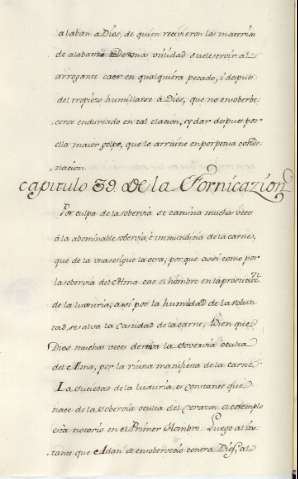 alaban à Dios, de quien recivieron las materias
de alabanza. De mas utilidad suele servir al
arrogante caer en qualquiera pecado, i despues
del tropiezo humillarse à Dios, que no ensoberbe
cerse endurado en tal elacion, y dar despues por
ella maior golpe, que le arruine en perpetua conde
nacion.
Capitulo 39. De la Fornicazion
Por culpa de la sobervia se camina muchas veces
à la abominable è immundicia de la carne,
que de la una se sigue la otra; porque assi como por
la sobervia del Alma cae el hombre en la
de la luxuria; assi por la humildad de la volun
tad, se salva la Castidad de la carne, Bien que
Dios muchas veces derriva la sovervia oculta
del Alma, por la ruina manifiesta de la carne.
La de la luxuria, es constante que
nace de la sobervia oculta del corazon: el exemplo
està notorio en el Primer Hombre. Luego al ins
tante que Adan se ensobervecio contra Dios, al